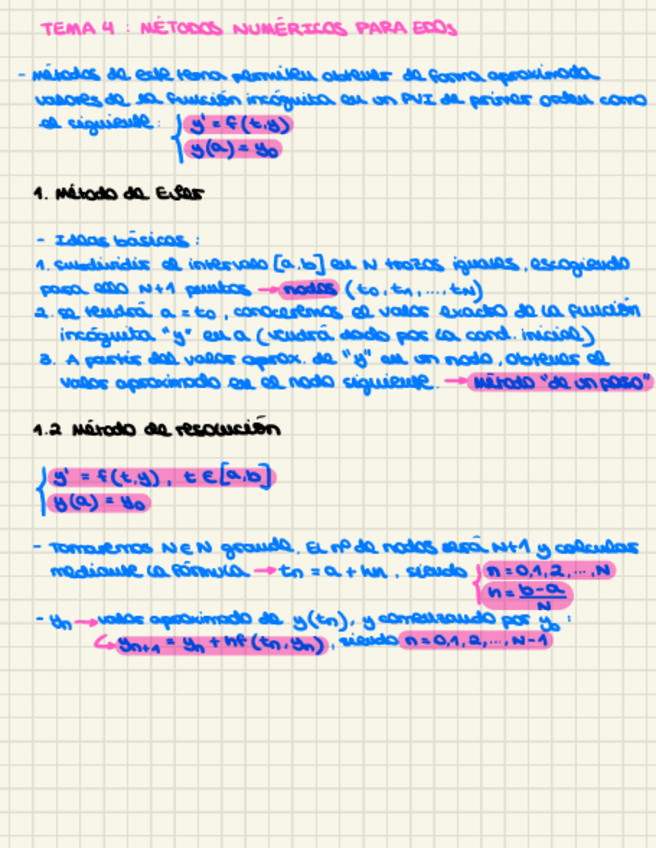 TEMA 4 : MÉTODOS NUMÉRICOS PARA EDOs
- métodos de este tema permiten obtener de forma aproximada
valores de la función incógnita en un PVI de primer orden como
el siguiente: { y' = f(t,y)
y(a) = y₀
1. Método de Euler
- Ideas básicas:
1. subdividir el intervalo [a,b] en N trozos iguales, escogiendo
para ello N+1 puntos → nodos (t₀, t₁, ..., tN)
2. se tendrá a = t₀, conoceremos el valor exacto de la función
incógnita "y" en a (vendrá dado por la cond. inicial)
3. A partir del valor aprox. de "y" en un nodo, obtener el
valor aproximado en el nodo siguiente. → método "de un paso"
1.2 Método de resolución
{ y' = f(t,y), t ∈ [a,b]
y(a) = y₀
- Tomaremos N ∈ N grande. El nº de nodos será N+1 y calcular
mediante la fórmula → tn = a + hn, siendo { n = 0,1,2,...,N
h = b-a/N
- yn → valor aproximado de y(tn), y comenzando por y₀:
↳ yn+1 = yn + hf(tn, yn), siendo n = 0,1,2,...,N-1